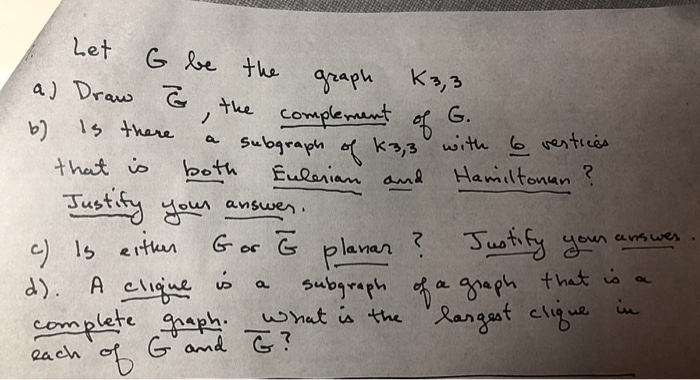 Let G be the graph K3,3
a) Draw G̅, the complement of G.
b) Is there a subgraph of K3,3 with 6 vertices
that is both Eulerian and Hamiltonian?
Justify your answer.
c) Is either G or G̅ planar? Justify your answer.
d). A clique is a subgraph of a graph that is a
complete graph. What is the largest clique in
each of G and G̅?